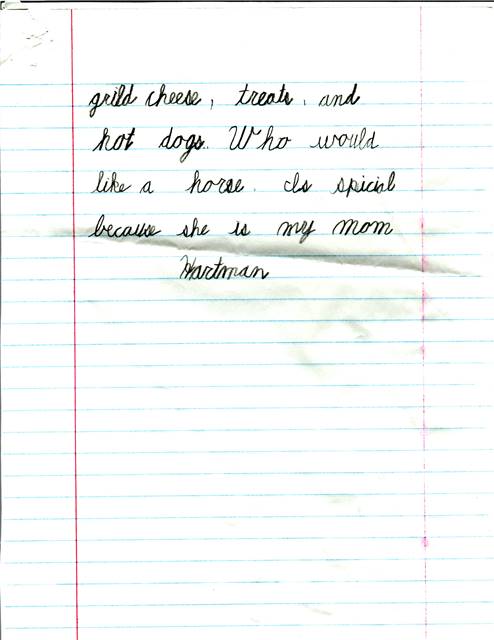 grild cheese, treats, and
hot dogs. Who would
like a horse. Is spicial
because she is my mom
Hartman